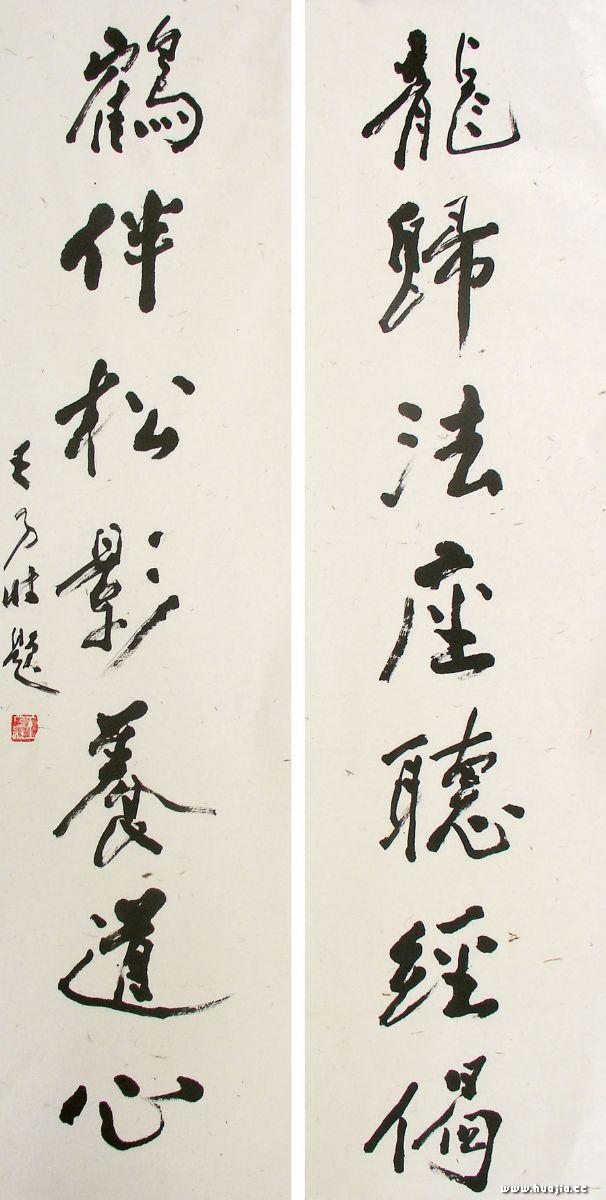 龍歸法座聽經偈
鶴伴松影養道心
題
www.huajia.cc